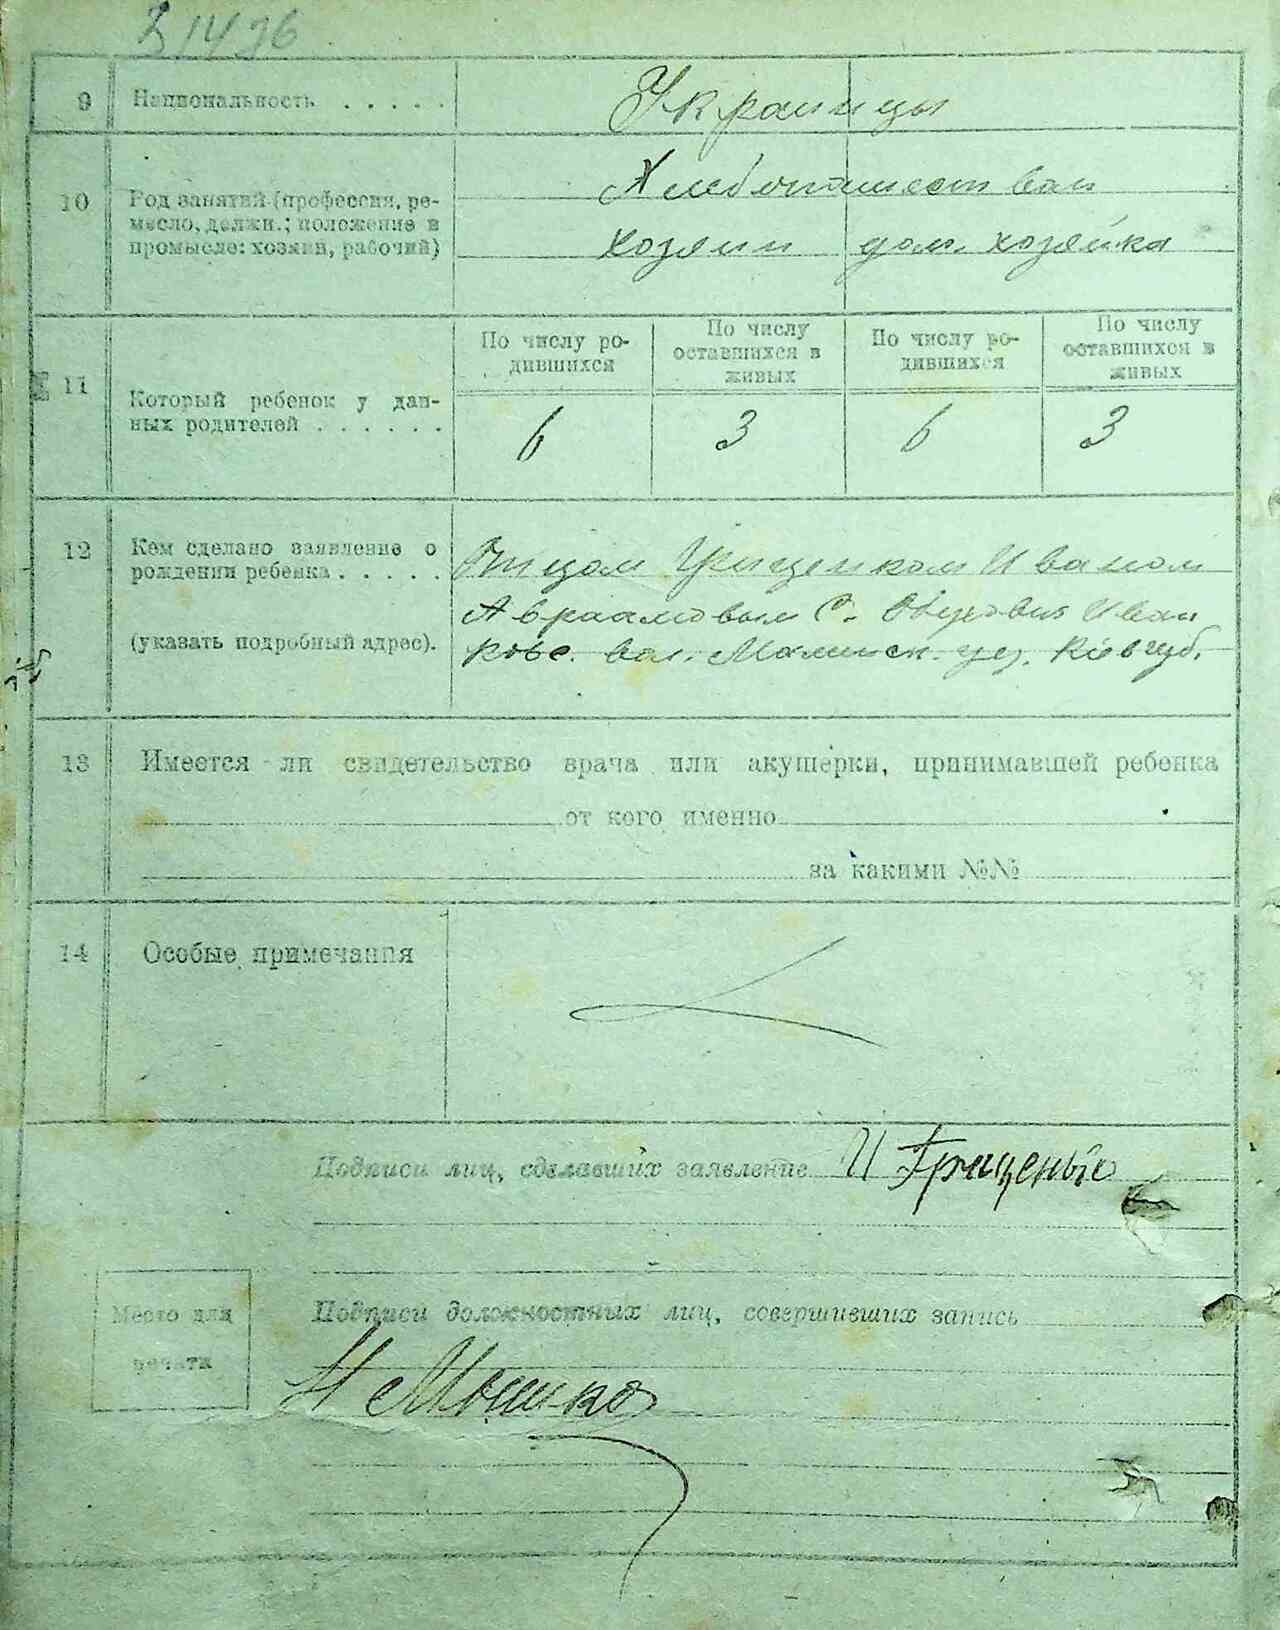 31436
9 Национальность . . . . .
Украинцы
10 Род занятий (профессия, ре-
месло, должн.; положение в
промысле: хозяин, рабочий)
Хлебопашест ван
хозяин дом. хозяйка
11 Который ребенок у дан-
ных родителей . . . . . .
По числу ро-
дившихся
По числу
оставшихся в
живых
По числу ро-
дившихся
По числу
оставшихся в
живых
6 3 6 3
12 Кем сделано заявление о
рождении ребенка . . . . .
(указать подробный адрес).
Отцом Грищенком Иваном
Авраамовым С. Обуховка Иван
ковс. вол. Малинск. уез. Кіев губ.
13 Имеется ли свидетельство врача или акушерки, принимавшей ребенка
от кого именно
за какими №№
14 Особые примечания
Подписи лиц, сделавших заявление И Грищенко
Место для
печати
Подписи должностных лиц, совершивших запись